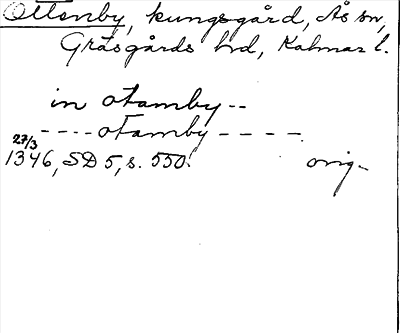 Ottenby, kungsgård, Ås sn,
Gräsgårds hd, Kalmar l.
in otamby --
---- otamby ----
27/3
1346, SD 5, s. 550. orig.